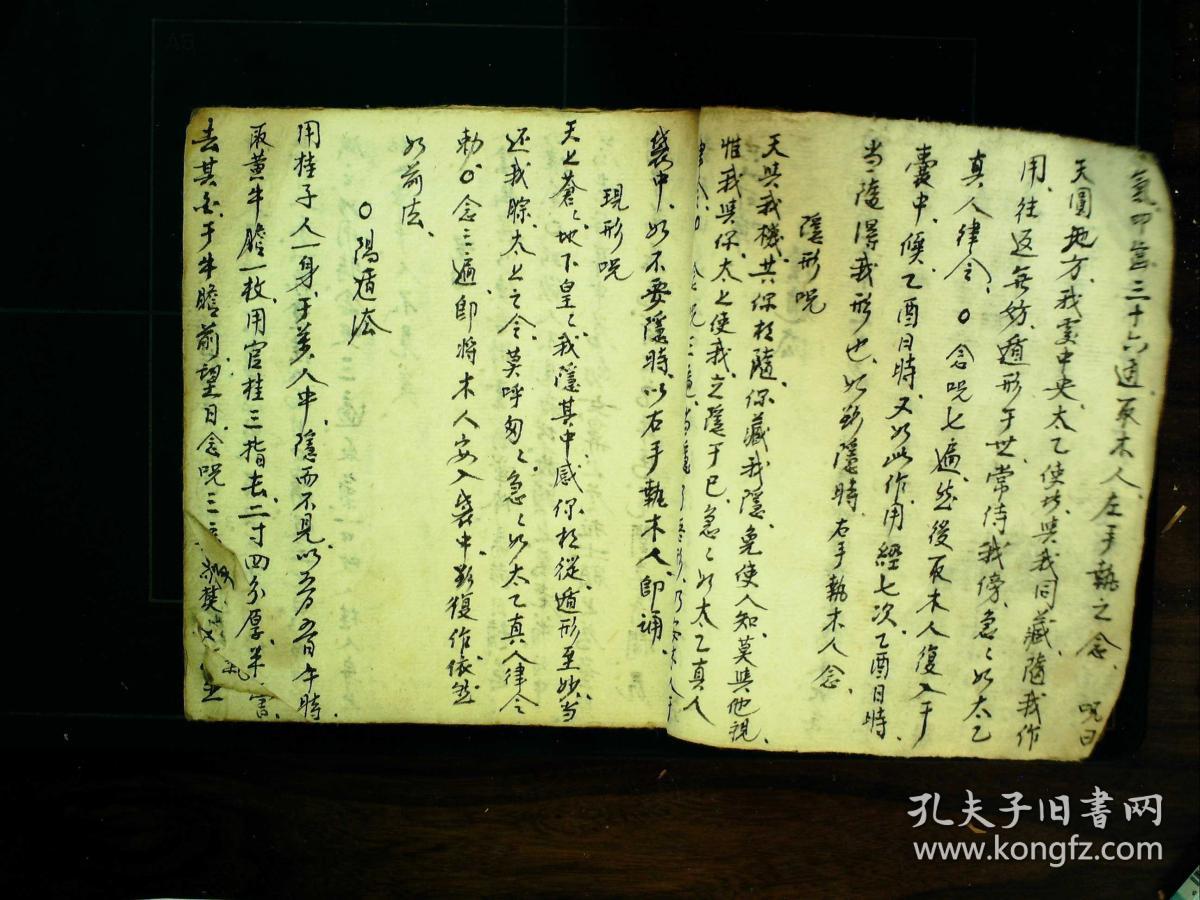 氣叩齒三十六通取木人左手執之念 呪曰
天圓地方我處中央太乙使此與我同藏隨我作
用往返無妨遁形于世常侍我傍急〻如太乙
真人律令〇念呪七遍然後取木人復入于
囊中候乙酉日時又如此作用經七次乙酉日時
当隨得我形也如欲隱時右手執木人念
隱形呪
天與我機共你相隨你藏我隱免使人知莫與他説
惟我與你太上使我之隱于已急〻如太乙真人
袋中如不要隱時以右手執木人即誦
現形呪
天上蒼〻地下皇〻我隱其中感你相從遁形至妙当
还我踪太上之令莫呼匆〻急〻如太乙真人律令
勅〇念三遍即將木人安入袋中欲復作依然
如前法
〇陽遁法
用桂子人一身于萬人中隱而不見以五月五日午時
取黄牛膽一枚用官桂三指去二寸四分厚米
去其于牛膽前望日念呪三
孔夫子旧書网
www.kongfz.com